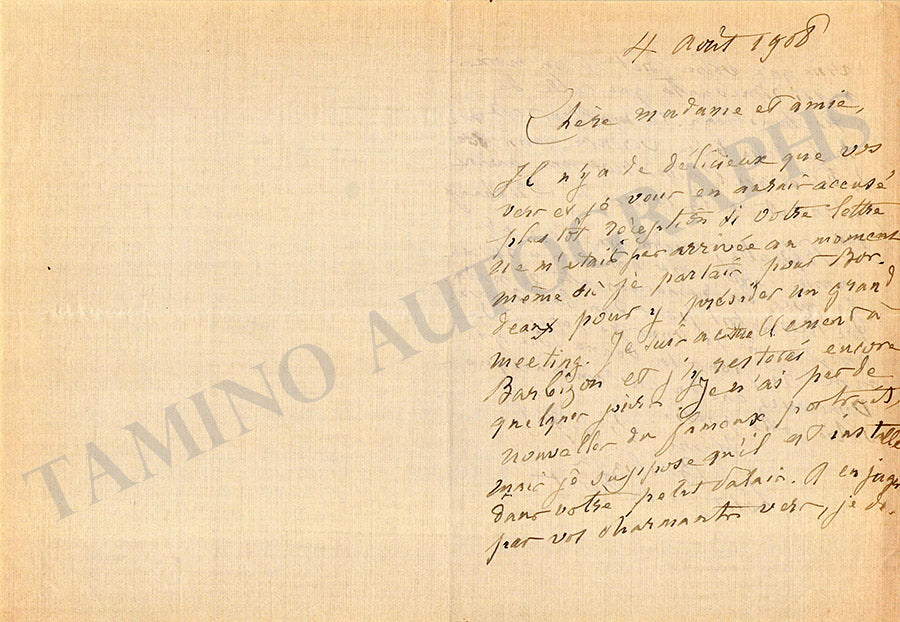 4 Août 1908
Chère madame et amie,
Il n'y a de délicieux que vos
vers et je vous en aurais accusé
plus tôt réception si votre lettre
ne m'était pas arrivée au moment
même où je partais pour Bor-
deaux pour y présider un grand
meeting. Je suis actuellement à
Barbizon et j'y resterai encore
quelques jours. Je n'ai pas de
nouvelles du fameux portrait,
mais je suppose qu'il est installé
dans votre petit Palais. A en juger
par vos charmants vers, je de-
TAMINO AUTOGRAPHS